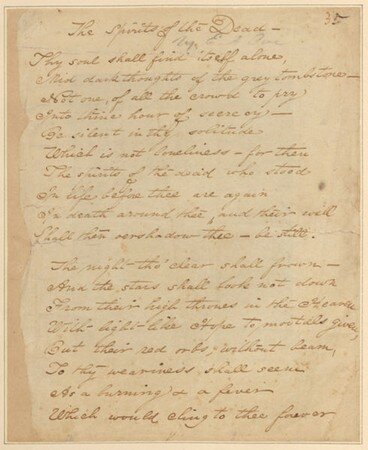 The Spirits of the Dead —
35
Thy soul shall find itself alone,
'Mid dark thoughts of the grey tombstone —
Not one, of all the crowd to pry
Into thine hour of secrecy —
Be silent in thy solitude
Which is not loneliness — for then
The spirits of the dead who stood
In life before thee are again
In death around thee, and their will
Shall then overshadow thee — be still.
The night, tho' clear shall frown —
And the stars shall look not down
From their high thrones in the Heaven
With light like Hope to mortals given,
But their red orbs, without beam,
To thy weariness shall seem
As a burning & a fever
Which would cling to thee forever